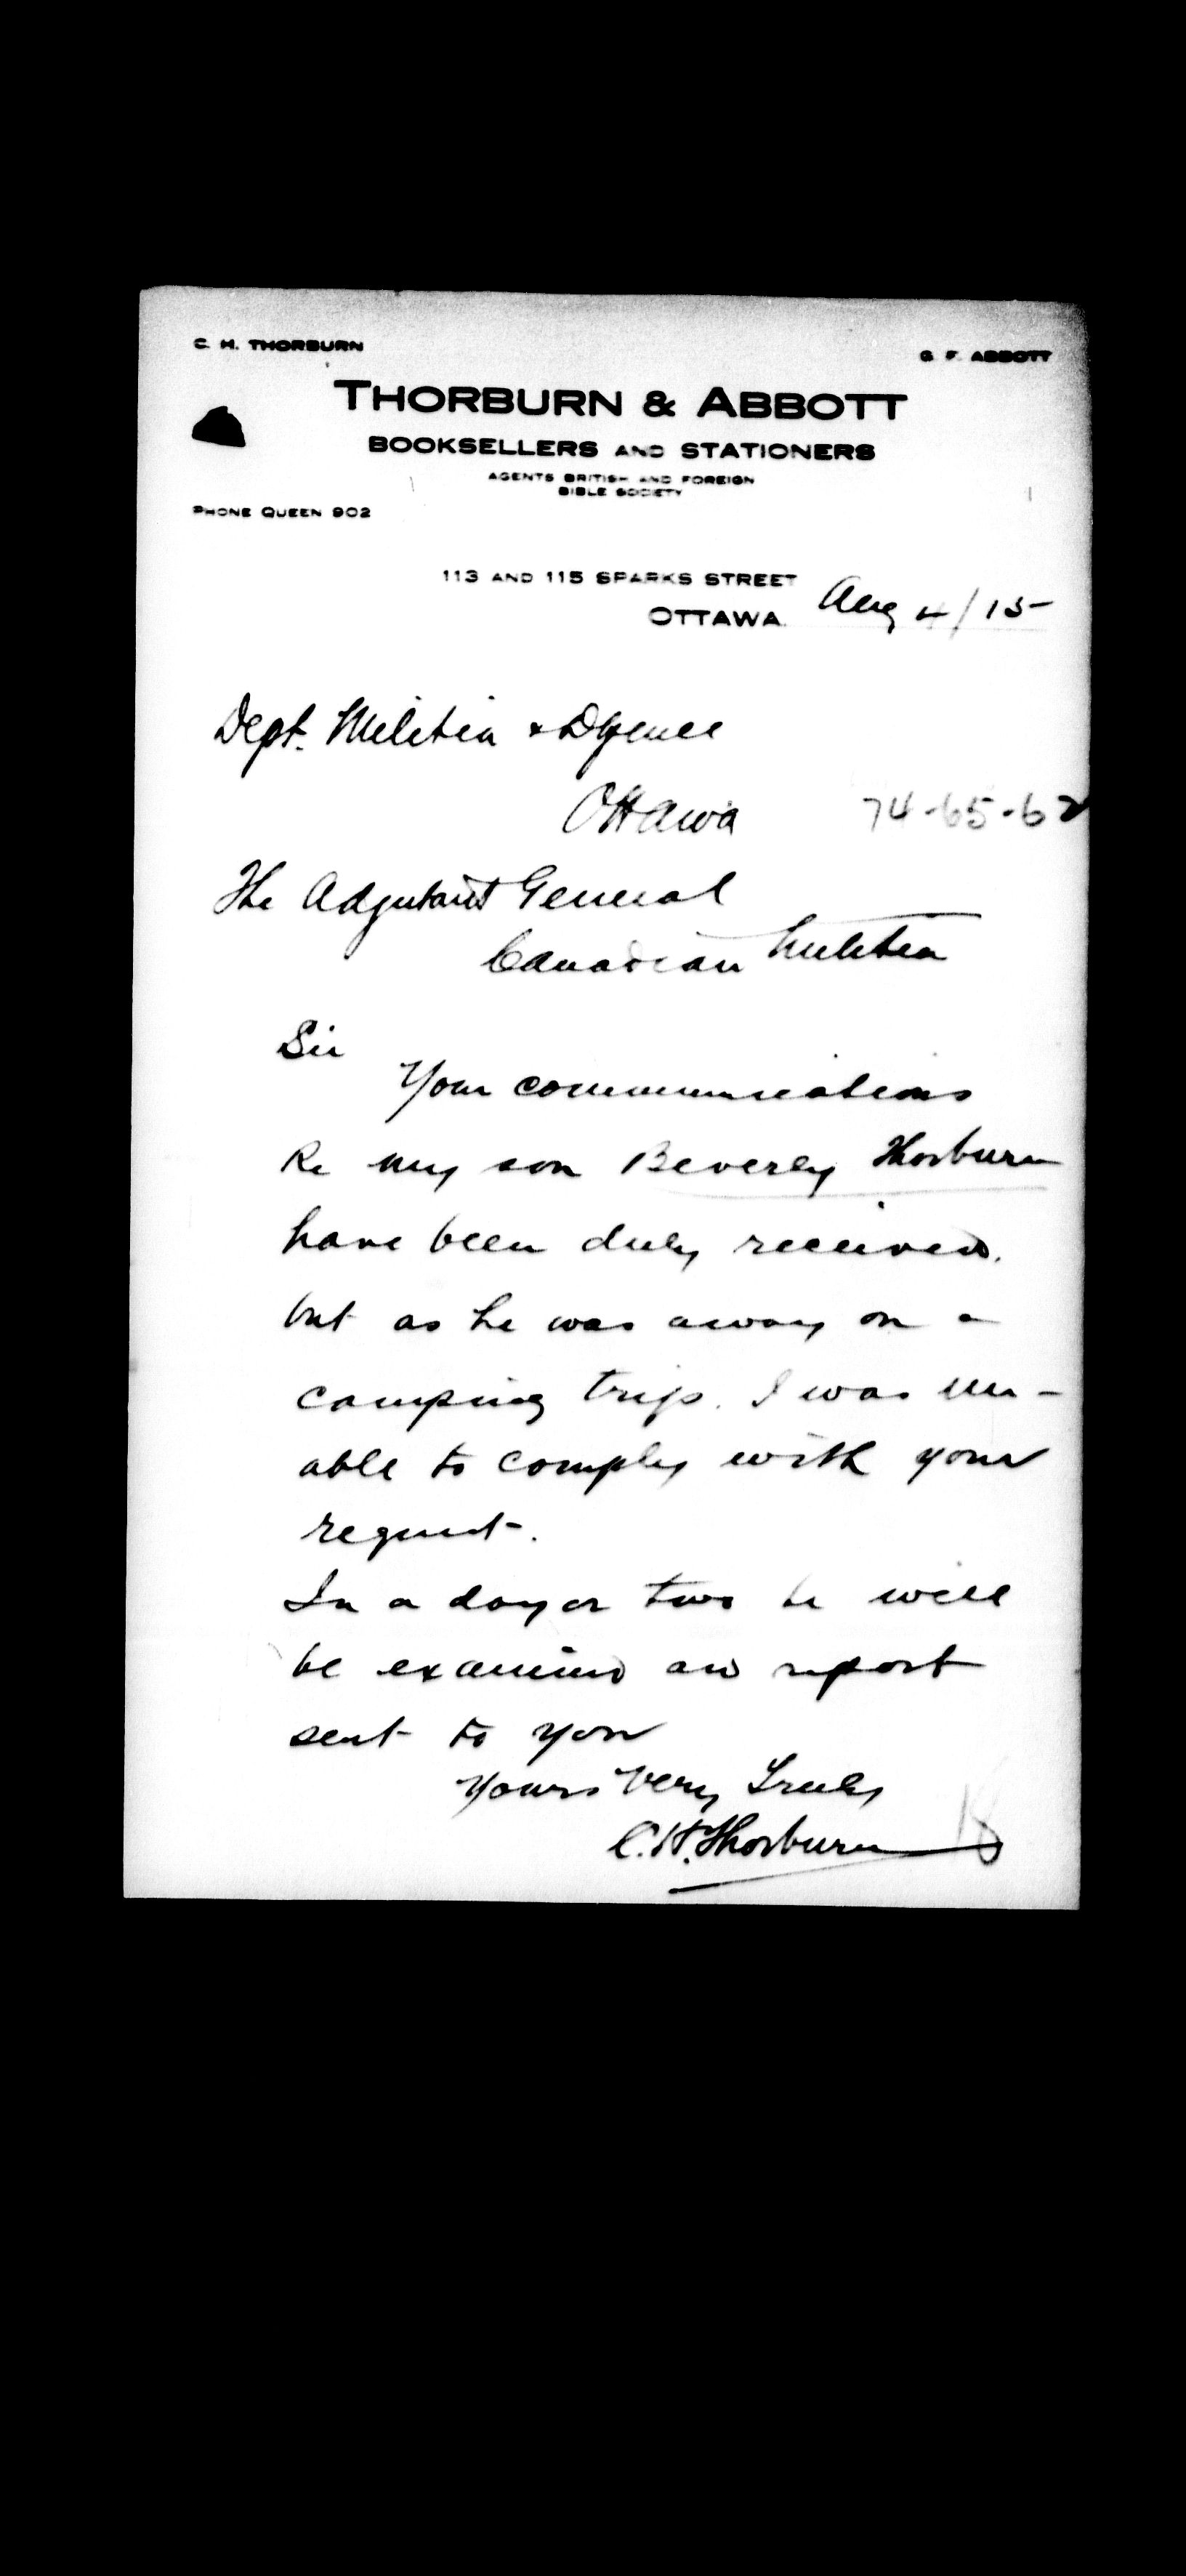 C. H. THORBURN
G. F. ABBOTT
THORBURN & ABBOTT
BOOKSELLERS AND STATIONERS
AGENTS BRITISH AND FOREIGN
BIBLE SOCIETY
PHONE QUEEN 902
113 AND 115 SPARKS STREET
OTTAWA. Aug 4/15
Dept. Militia & Defence
Ottawa 74-65-62
The Adjutant General
Canadian Militia
Sir
Your communications
Re my son Beverly Thorburn
have been duly received.
but as he was away on a
camping trip. I was un-
able to comply with your
request.
In a day or two he will
be examined and report
sent to you
Yours very Truly
C. H. Thorburn
18